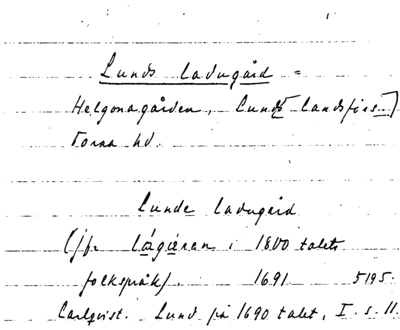 Lunds ladugård =
Helgonagården, Lunds landsförs.]
Torna hd.
Lunde ladugård
(jfr lágiéran i 1800 talets
folkspråk). 1691 5195.
Carlquist. Lund på 1690 talet, I. s. 11.